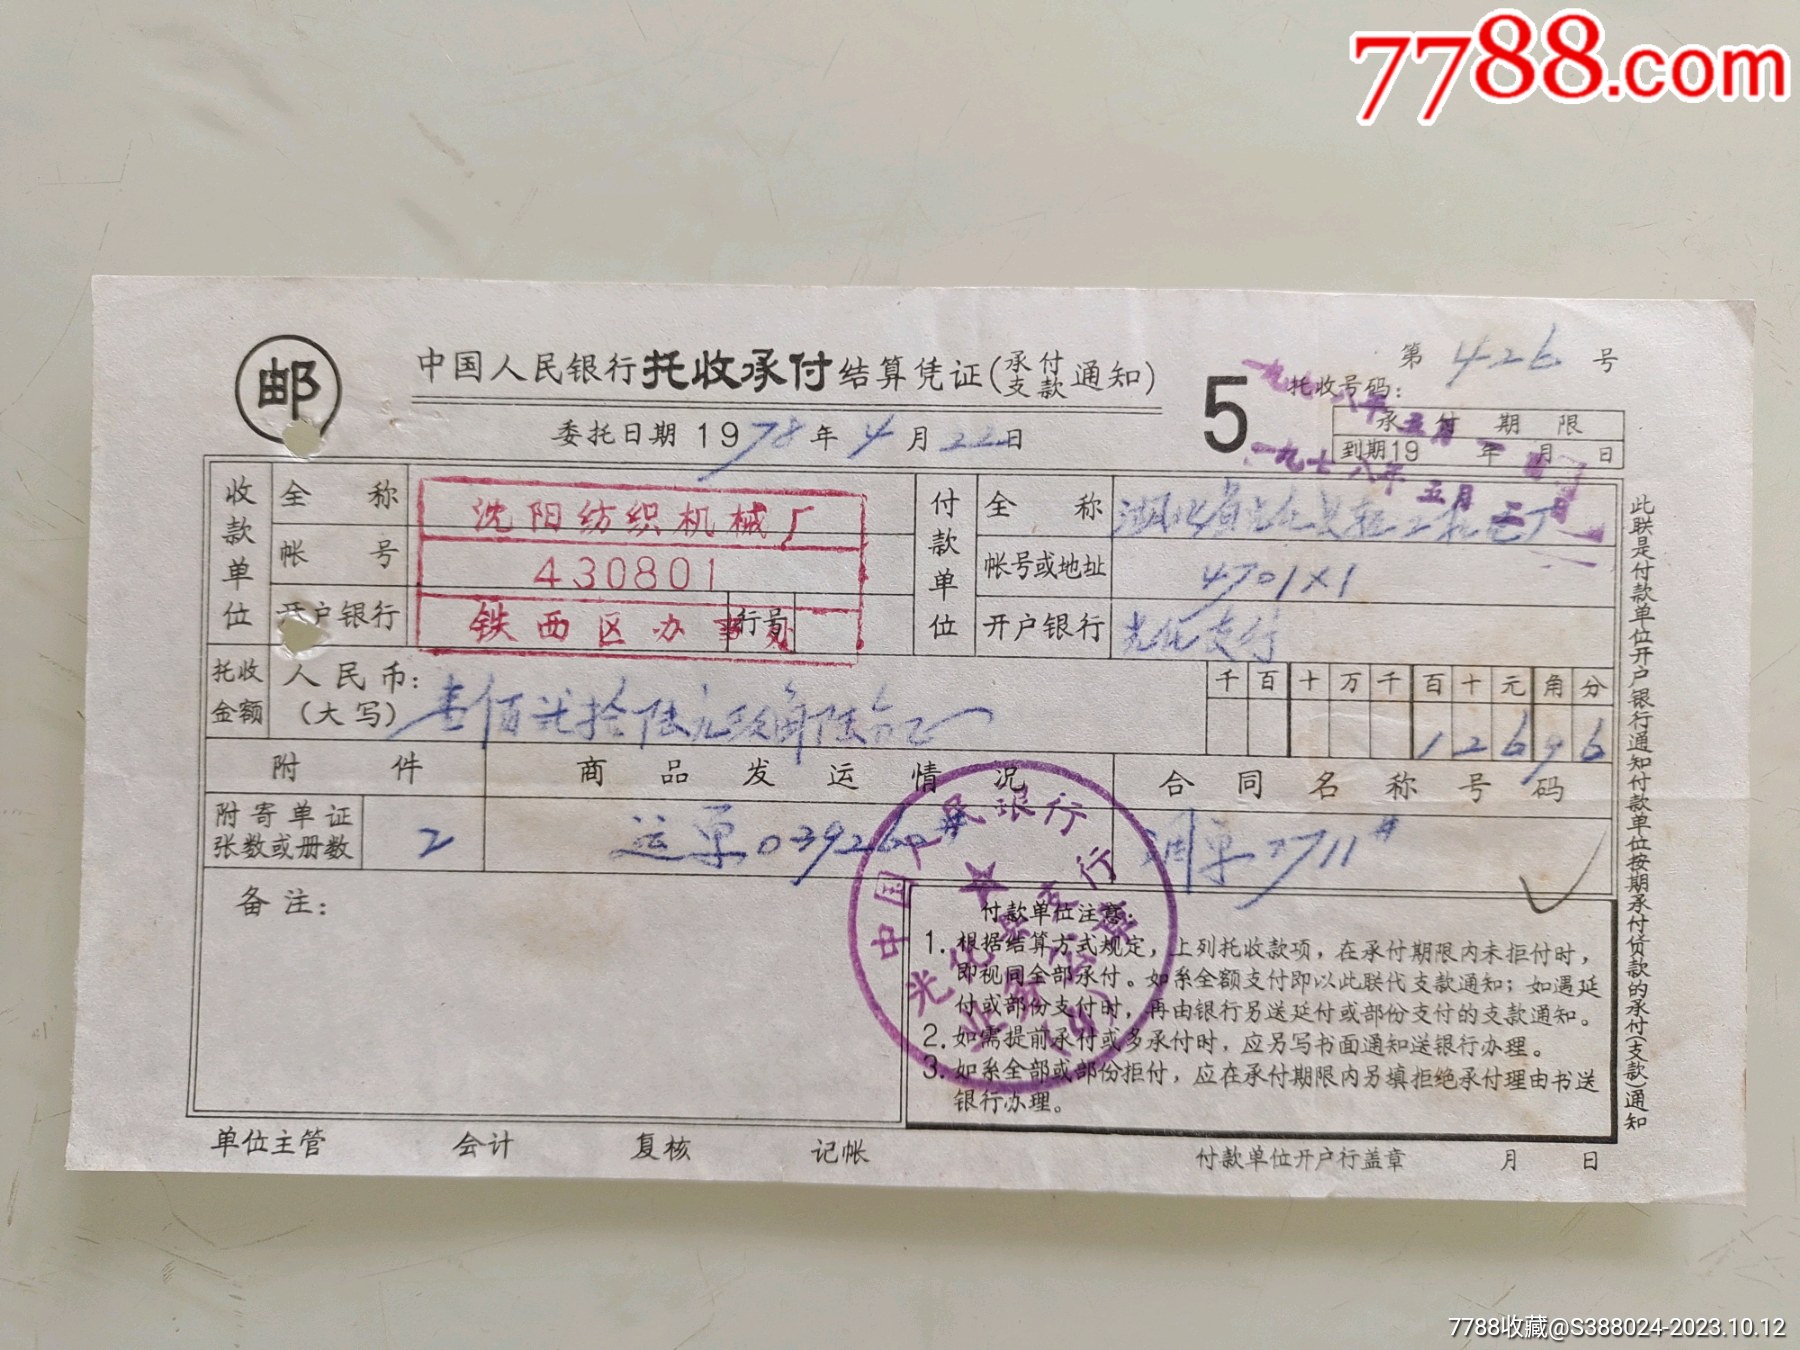 7788.com
邮
中国人民银行托收承付结算凭证(承付支款通知)
第 426 号
5
托收号码:
委托日期 1978年4月22日
承付期限
到期19 年 月 日
一九七八年五月
一九七八年五月三日
收款单位
全称
沈阳纺织机械厂
帐号
430801
开户银行
铁西区办事处
行号
付款单位
全称
湖北省光化县
帐号或地址
4701×1
开户银行
光化支行
托收金额
人民币:
(大写)
壹佰贰拾陆元玖角陆分正
千 百 十 万 千 百 十 元 角 分
1 2 6 9 6
附件
商品发运情况
合同名称号码
附寄单证
张数或册数
2
运单039260#
调单7711#
备注:
中国人民银行
光化县支行
业务公章
付款单位注意:
1. 根据结算方式规定，上列托收款项，在承付期限内未拒付时，
即视同全部承付。如系全额支付即以此联代支款通知；如遇延
付或部份支付时，再由银行另送延付或部份支付的支款通知。
2. 如需提前承付或多承付时，应另写书面通知送银行办理。
3. 如系全部或部份拒付，应在承付期限内另填拒绝承付理由书送
银行办理。
此联是付款单位开户银行通知付款单位按期承付货款的承付(支款)通知
单位主管 会计 复核 记帐
付款单位开户行盖章 月 日
7788收藏@S388024-2023.10.12